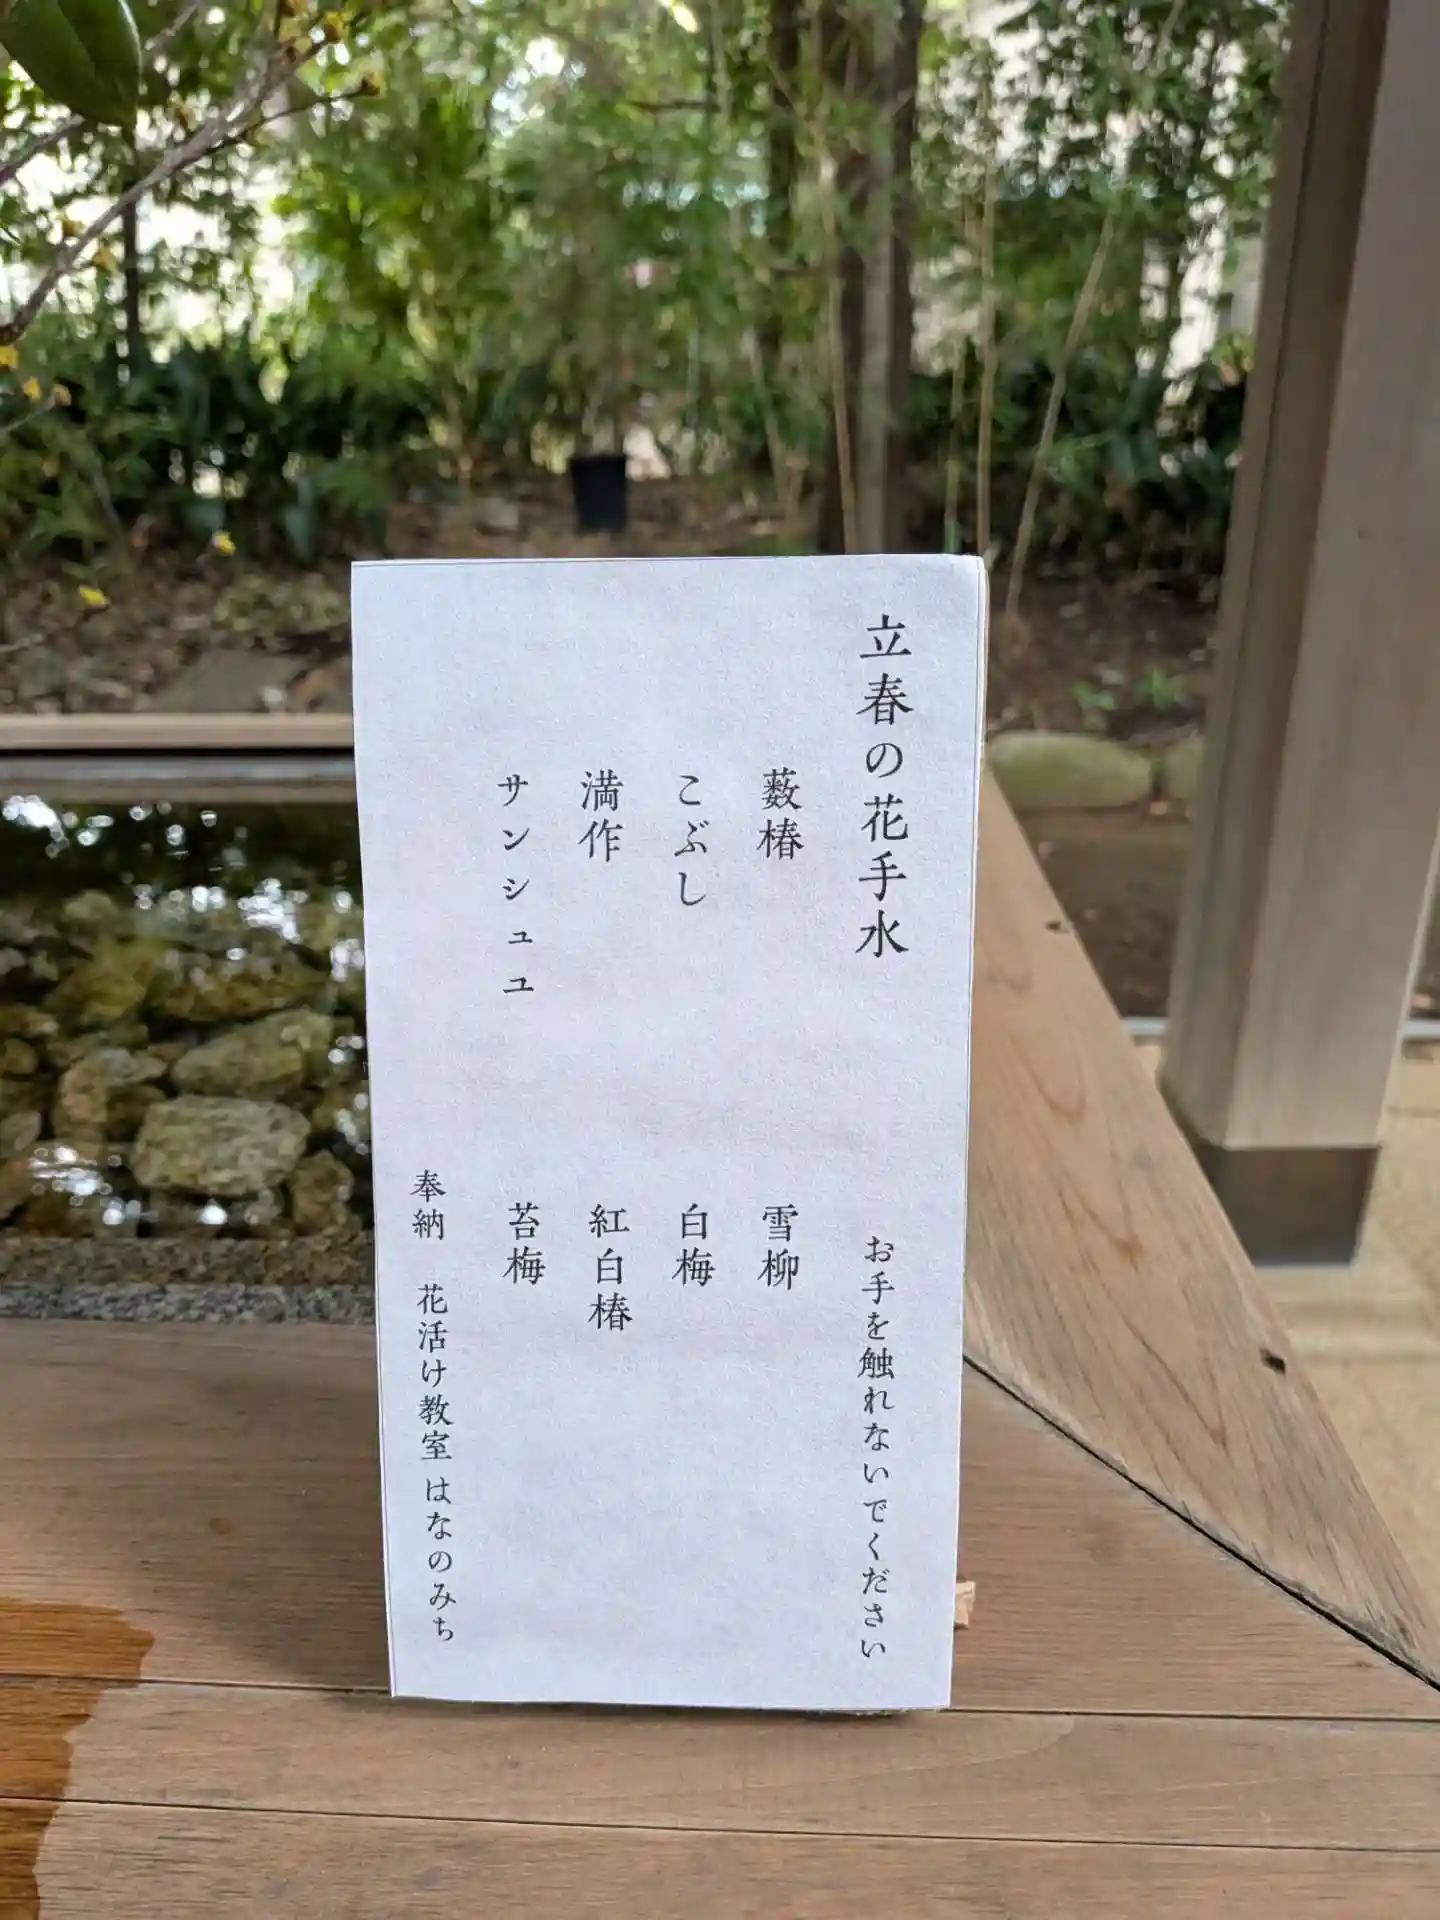 立春の花手水
お手を触れないでください
薮椿
雪柳
こぶし
白梅
満作
紅白椿
サンシュユ
苔梅
奉納 花活け教室 はなのみち